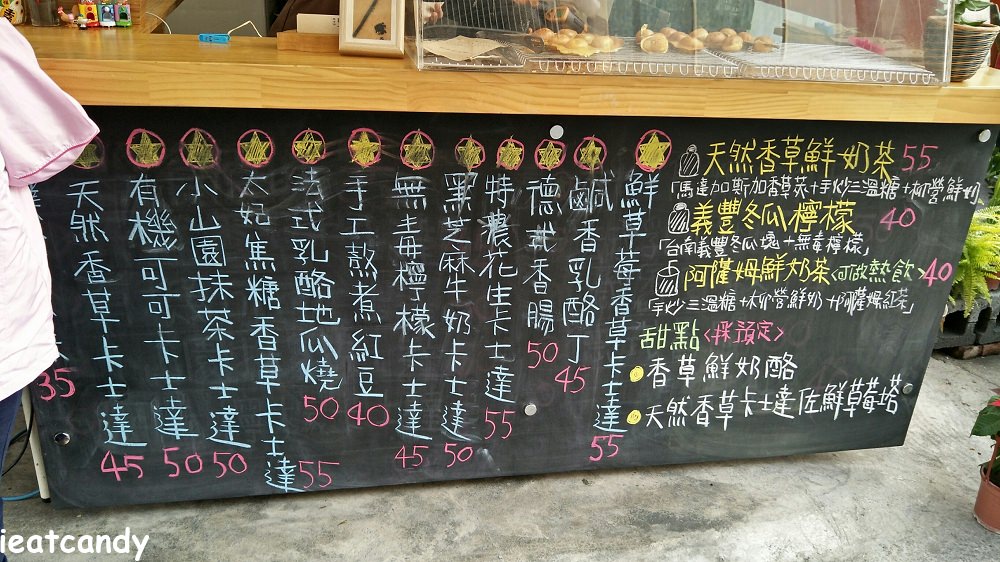 鮮草莓香草卡士達 55
鹹香乳酪丁 45
德式香腸 50
特濃花生卡士達 55
黑芝麻牛奶卡士達 50
無毒檸檬卡士達 45
手工熬煮紅豆 40
法式乳酪地瓜燒 50
太妃焦糖香草卡士達 55
小山園抹茶卡士達 50
有機可可卡士達 50
天然香草卡士達 45
35
天然香草鮮奶茶 55
「馬達加斯加香草莢+手炒三溫糖+柳營鮮奶」
義豐冬瓜檸檬 40
「台南義豐冬瓜塊+無毒檸檬」
阿薩姆鮮奶茶<可做熱飲> 40
「手炒三溫糖+柳營鮮奶+阿薩姆紅茶」
甜點<採預定>
香草鮮奶酪
天然香草卡士達佐鮮草莓塔
ieatcandy